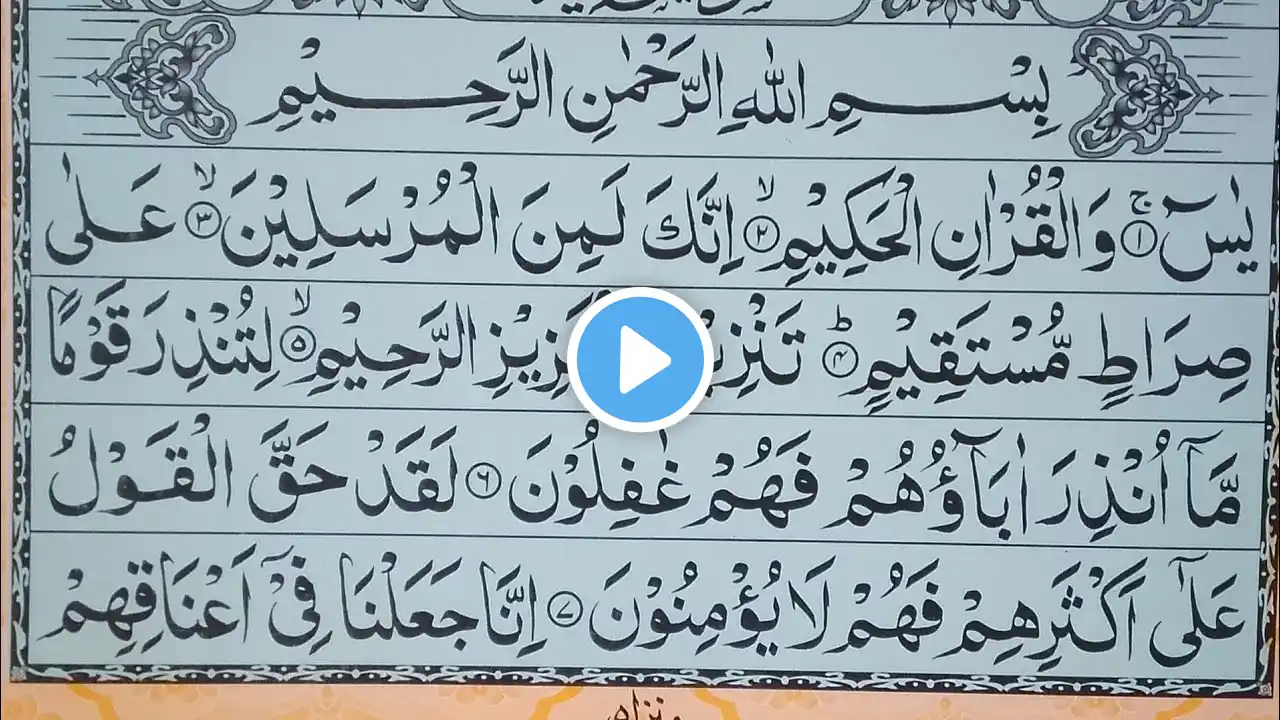 بِسْمِ اللهِ الرَّحْمٰنِ الرَّحِيْمِ
يٰسٓ ۚ﴿۱﴾ وَالْقُرْاٰنِ الْحَكِيْمِ ۙ﴿۲﴾ اِنَّكَ لَمِنَ الْمُرْسَلِيْنَ ۙ﴿۳﴾ عَلٰى
صِرَاطٍ مُّسْتَقِيْمٍ ؕ﴿۴﴾ الرَّحِيْمِ ۙ﴿۵﴾ لِتُنْذِرَ قَوْمًا
مَّاۤ اُنْذِرَ اٰبَآؤُهُمْ فَهُمْ غٰفِلُوْنَ ﴿۶﴾ لَقَدْ حَقَّ الْقَوْلُ
عَلٰٓى اَكْثَرِهِمْ فَهُمْ لَا يُؤْمِنُوْنَ ﴿۷﴾ اِنَّا جَعَلْنَا فِيْۤ اَعْنَاقِهِمْ